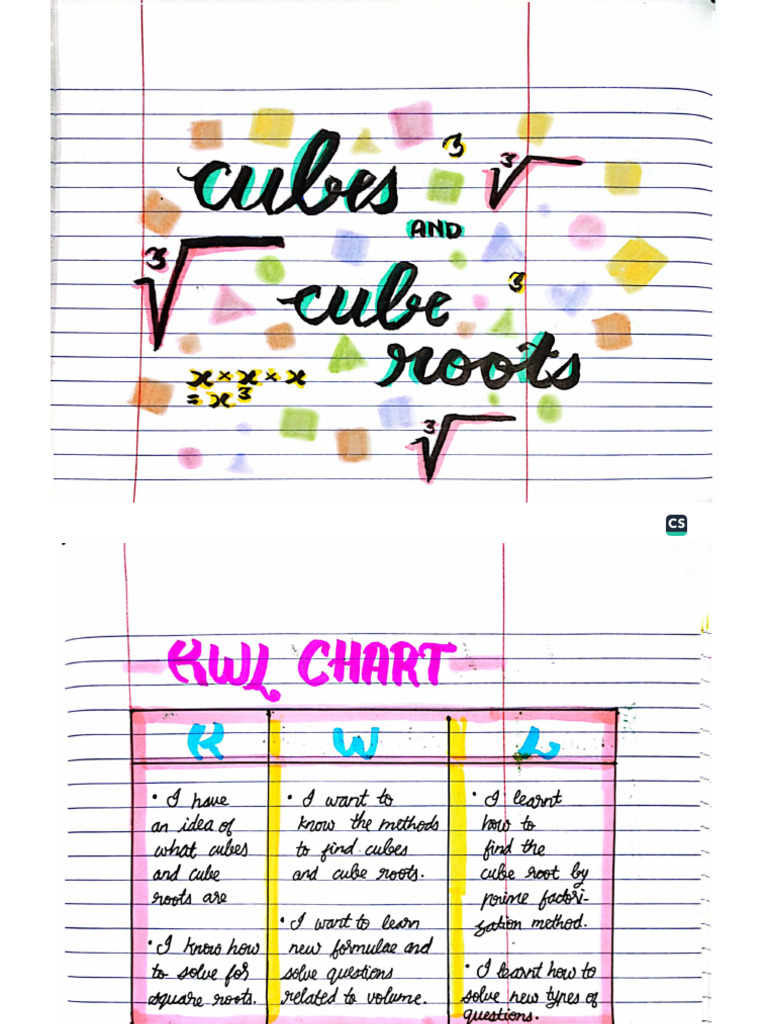 cubes
3
3√
AND
3√
cube
3
roots
x × x × x
= x³
3√
CS
KWL CHART
K W L
• I have
an idea of
what cubes
and cube
roots are
• I know how
to solve for
square roots.
• I want to
know the methods
to find cubes
and cube roots.
• I want to learn
new formulae and
solve questions
related to volume.
• I learnt
how to
find the
cube root by
prime factori-
zation method.
• I learnt how to
solve new types of
questions.